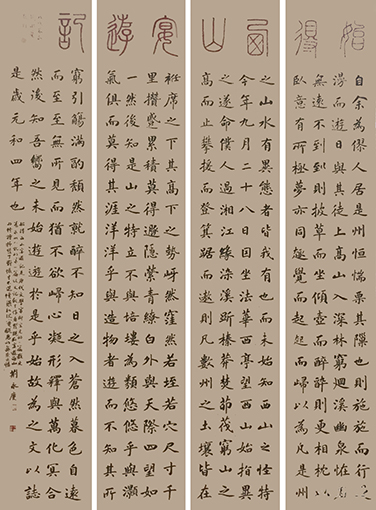 始得
自余為僇人居是州恒惴慄其隟也則施施而行漫
漫而遊日與其徒上高山入深林窮迴溪幽泉怪石
無遠不到到則披草而坐傾壺而醉醉則更相枕以
臥意有所極夢亦同趣覺而起起而歸以為凡是州
西山
之山水有異態者皆我有也而未始知西山之怪特
今年九月二十八日因坐法華西亭望西山始指異
之遂命僕人過湘江緣染溪斫榛莽焚茅茷窮山之
高而止攀援而登箕踞而遨則凡數州之土壤皆在
宴遊
衽席之下其高下之勢岈然窪然若垤若穴尺寸千
里攢蹙累積莫得遯隱縈青繚白外與天際四望如
一然後知是山之特立不與培塿為類悠悠乎與灝
氣俱而莫得其涯洋洋乎與造物者遊而不知其所
記
窮引觴滿酌頹然就醉不知日之入蒼然暮色自遠
而至至無所見而猶不欲歸心凝形釋與萬化冥合
然後知吾嚮之未始遊遊於是乎始故為之文以誌
是歲元和四年也